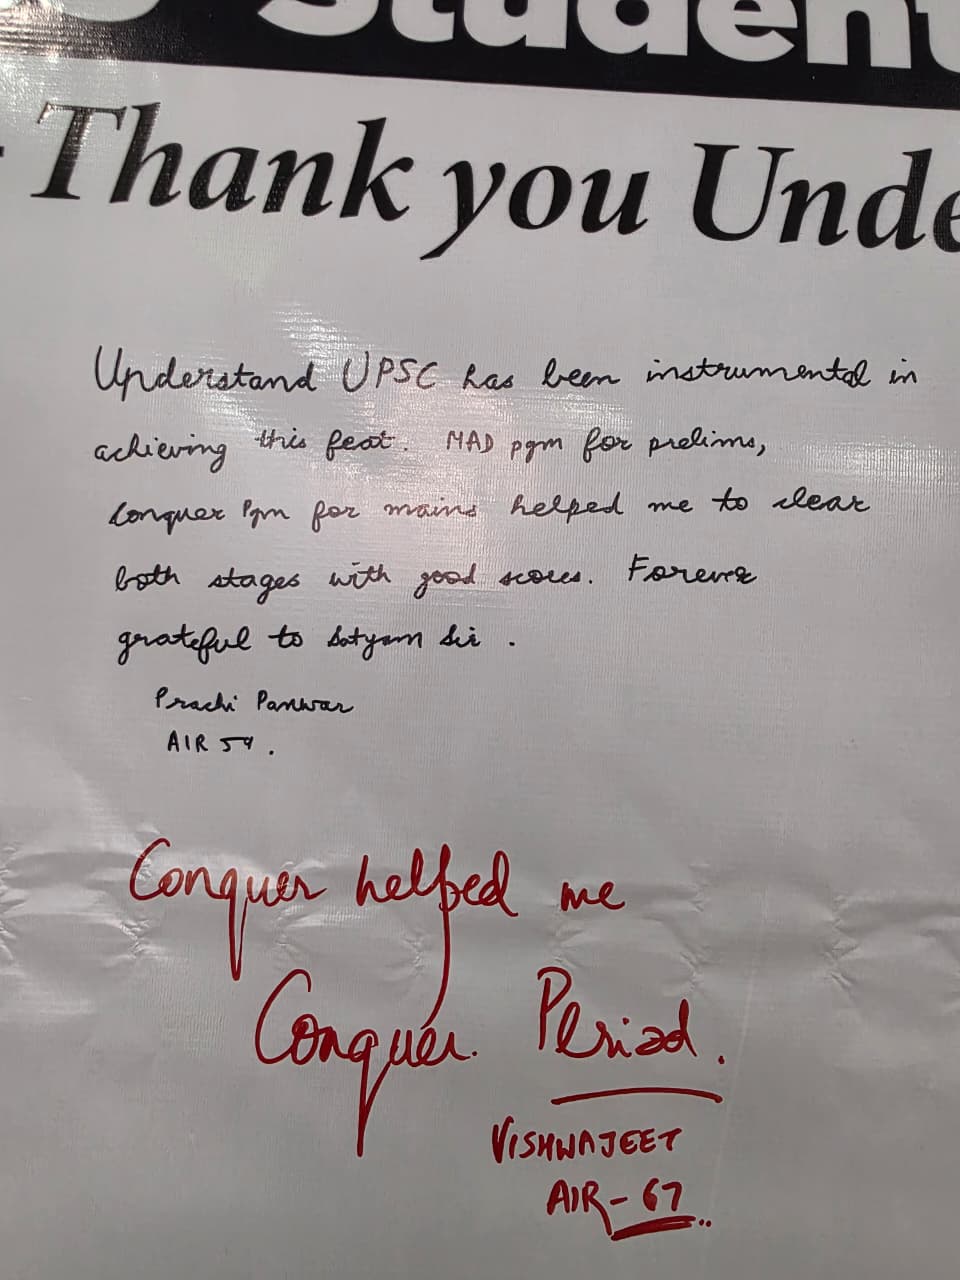 Student
Thank you Unde
Understand UPSC has been instrumental in
achieving this feat. MAD pgm for prelims,
Conquer Pgm for mains helped me to clear
both stages with good scores. Forever
grateful to Satyam Sir .
Prachi Panwar
AIR 54 .
Conquer helped me
Conquer. Period.
VISHWAJEET
AIR-67..